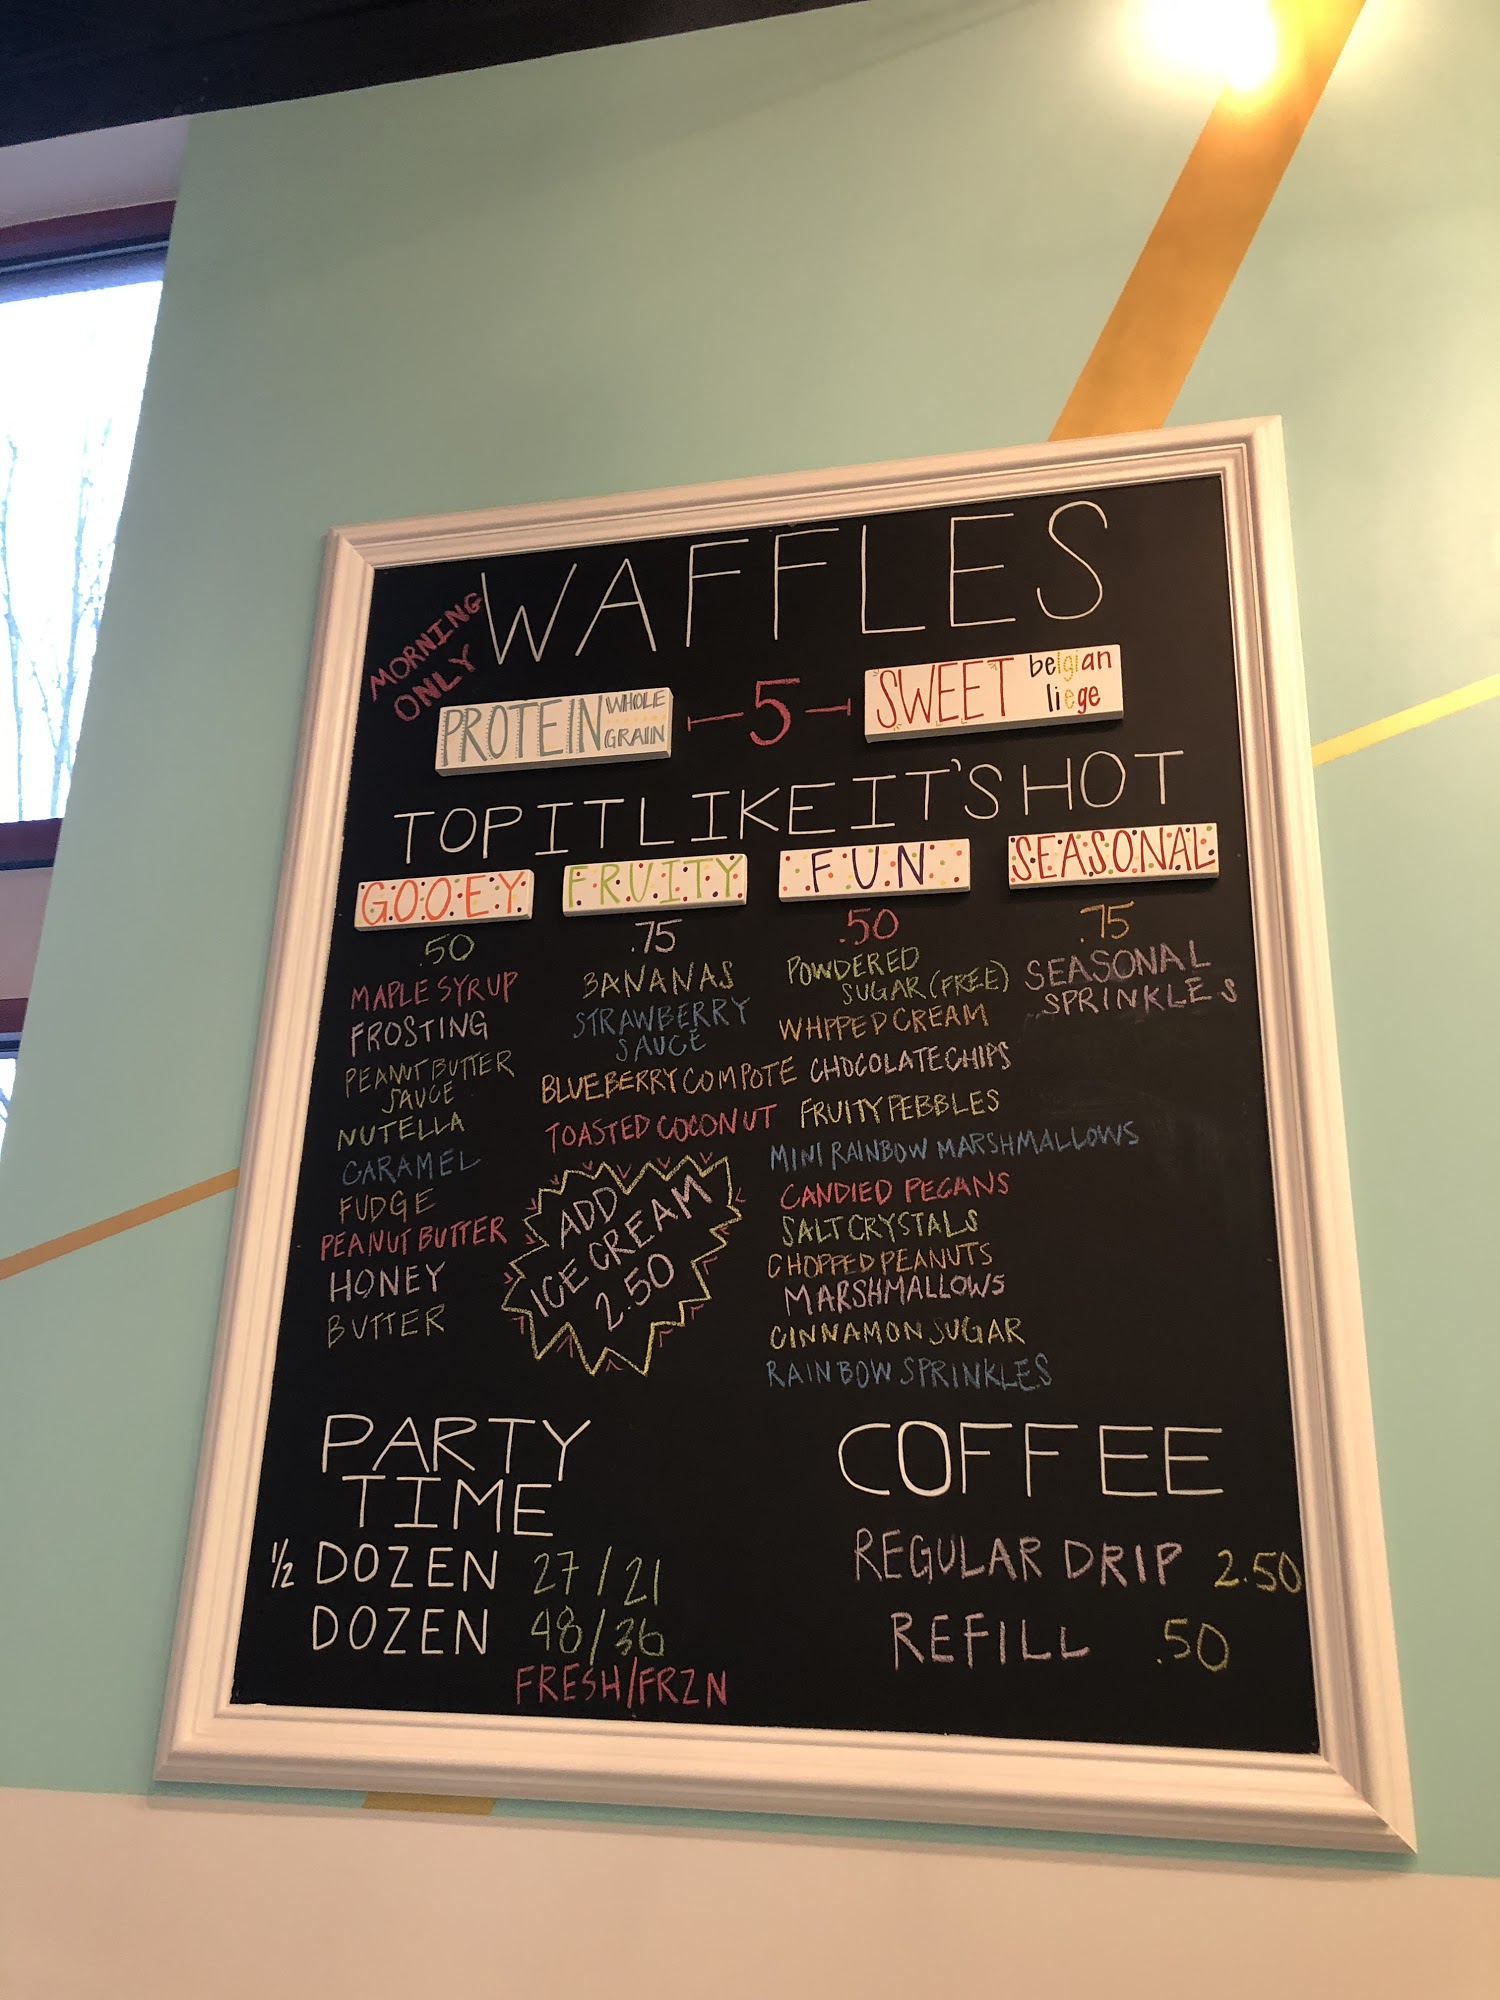 WAFFLES
MORNING
ONLY
PROTEIN WHOLE
GRAIN
5
SWEET belgian
liege
TOP IT LIKE IT'S HOT
GOOEY
.50
MAPLE SYRUP
FROSTING
PEANUT BUTTER
SAUCE
NUTELLA
CARAMEL
FUDGE
PEANUT BUTTER
HONEY
BUTTER
FRUITY
.75
BANANAS
STRAWBERRY
SAUCE
BLUEBERRY COMPOTE
TOASTED COCONUT
ADD
ICE CREAM
2.50
FUN
.50
POWDERED
SUGAR (FREE)
WHIPPED CREAM
CHOCOLATE CHIPS
FRUITY PEBBLES
MINI RAINBOW MARSHMALLOWS
CANDIED PECANS
SALT CRYSTALS
CHOPPED PEANUTS
MARSHMALLOWS
CINNAMON SUGAR
RAINBOW SPRINKLES
SEASONAL
.75
SEASONAL
SPRINKLES
PARTY
TIME
1/2 DOZEN 27/21
DOZEN 48/36
FRESH/FRZN
COFFEE
REGULAR DRIP 2.50
REFILL .50